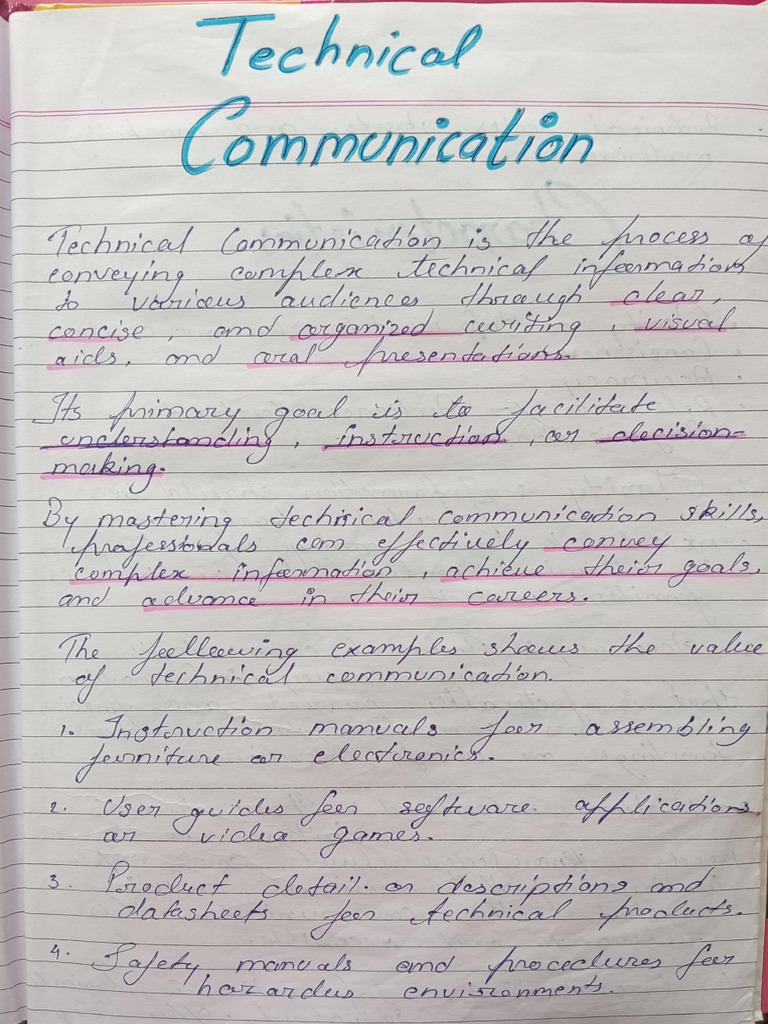 Technical
Communication
Technical Communication is the process of
conveying complex technical information
to various audiences through clear,
concise, and organized writing, visual
aids, and oral presentations.
Its primary goal is to facilitate
understanding, instruction, or decision-
making.
By mastering technical communication skills,
professionals can effectively convey
complex information, achieve their goals,
and advance in their careers.
The following examples shows the value
of technical communication.
1. Instruction manuals for assembling
furniture or electronics.
2. User guides for software applications
or video games.
3. Product detail or descriptions and
datasheets for technical products.
4. Safety manuals and procedures for
harardus environments.